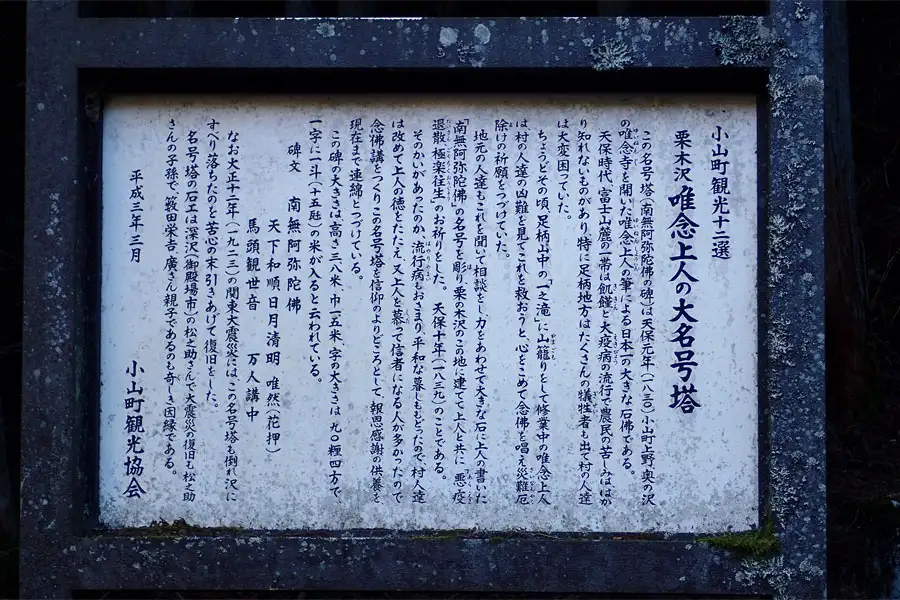 小山町観光十二選
栗木沢 唯念上人の大名号塔
この名号塔(南無阿弥陀佛の碑)は天保元年(一八三〇)小山町上野、奥の沢
の唯念寺を開いた唯念上人の筆による日本一の大きな石佛である。
天保時代、富士山麓の一帯は飢饉と大疫病の流行で農民の苦しみははか
り知れないものがあり、特に足柄地方はたくさんの犠牲者も出て村の人達
は大変困っていた。
ちょうどその頃、足柄山中の「一之滝」に山籠りをして修業中の唯念上人
は村の人達の凶難を見てこれを救おうと、心をこめて念佛を唱え災難厄
除けの祈願をつづけていた。
地元の人達もこれを聞いて相談をし、力をあわせて大きな石に上人の書いた
「南無阿弥陀佛」の名号を彫り栗の木沢のこの地に建てて上人と共に「悪疫
退散、極楽往生」のお祈りをした。天保十年(一八三九)のことである。
そのかいがあったのか、流行病もおさまり、平和な暮しももどったので村人達
は改めて上人の徳をたたえ、又上人を慕って信者になる人が多かったので
念佛講をつくりこの名号塔を信仰のよりどころとして、報恩感謝の供養を
現在まで連綿とつづけている。
この碑の大きさは、高さ三・八米、巾一・五米、字の大きさは九〇糎四方で
一字に一斗(十五瓩)の米が入ると云われている。
碑文 南無阿弥陀佛
天下和順日月清明 唯然(花押)
馬頭観世音 万人講中
なお大正十二年(一九二三)の関東大震災にはこの名号塔も倒れ沢に
すべり落ちたのを苦心の末引きあげて復旧をした。
名号塔の石工は深沢(御殿場市)の松之助さんで大震災の復旧も松之助
さんの子孫で、簔田栄吉、廣さん親子であるのも奇しき因縁である。
平成三年三月
小山町観光協会